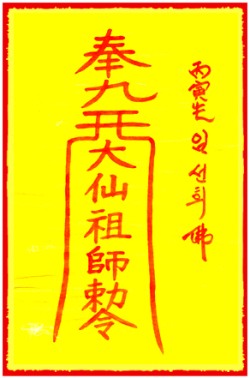 丙寅生 선희 佛
奉九天大仙祖師勅令